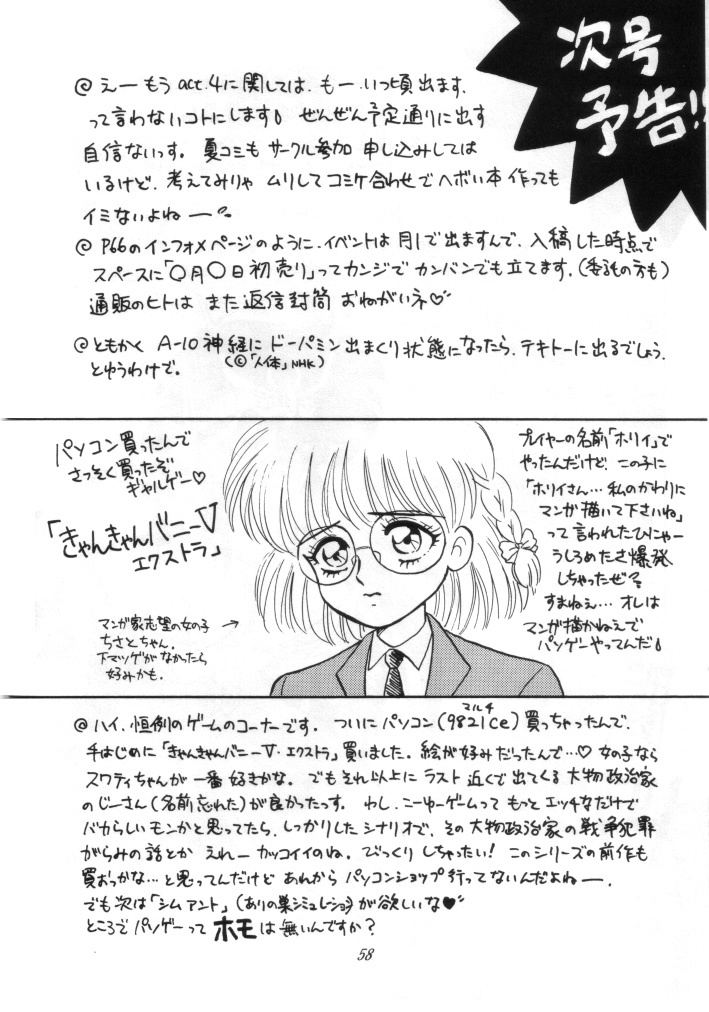 次号
予告!!
@えーもうact.4に関しては、もー、いつ頃出ます、
って言わないコトにします。ぜんぜん予定通りに出す
自信ないっす。夏コミもサークル参加申し込みしては
いるけど、考えてみりゃムリしてコミケ合わせでヘボい本作っても
イミないよねー
@P66のインフォメページのように、イベントは月1で出ますんで、入稿した時点で
スペースに「〇月〇日初売り」ってカンジでカンバンでも立てます。(委託の方も)
通販のヒトはまた返信封筒おねがいネ♡
@ともかくA-10神経にドーパミン出まくり状態になったら、テキトーに出るでしょう。
(©「人体」NHK)
とゆうわけで。
パソコン買ったんで
さっそく買ったぞ
ギャルゲー♡
「きゃんきゃんバニーV
エクストラ」
マンガ家志望の女の子→
ちさとちゃん。
下マツゲがなかったら
好みかも。
プレイヤーの名前「ホリイ」で
やったんだけど、この子に
「ホリイさん…私のかわりに
マンガ描いて下さいね」
って言われたひにゃー
うしろめたさ爆発
しちゃったぜ?
すまねえ…オレは
マンガ描かねえで
パソゲーやってんだ
@ハイ、恒例のゲームのコーナーです。ついにパソコン(9821Ce)買っちゃったんで、
マルチ
手はじめに「きゃんきゃんバニーV・エクストラ」買いました。絵が好みだったんで…♡女の子なら
スワティちゃんが一番好きかな。でもそれ以上にラスト近くで出てくる大物政治家
のじーさん(名前忘れた)が良かったっす。わし、こーゆーゲームってもっとエッチなだけで
バカらしいモンかと思ってたら、しっかりしたシナリオで、その大物政治家の戦争犯罪
がらみの話とかえれーカッコイイのね。びっくりしちゃったい!このシリーズの前作も
買おっかな…と思ってんだけどあれからパソコンショップ行ってないんだよねー。
でも次は「シムアント」(ありの巣シミュレーション)が欲しいな♥
ところでパソゲーってホモは無いんですか?
58